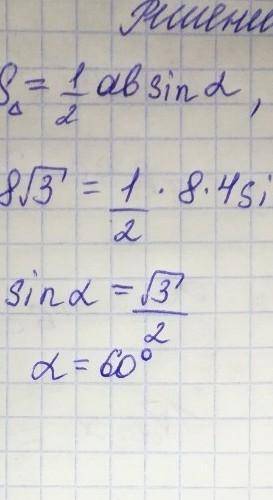 Решени
S△ = 1/2 ab sin α,
8√3 = 1/2 · 8 · 4 si
sin α = √3/2
α = 60°